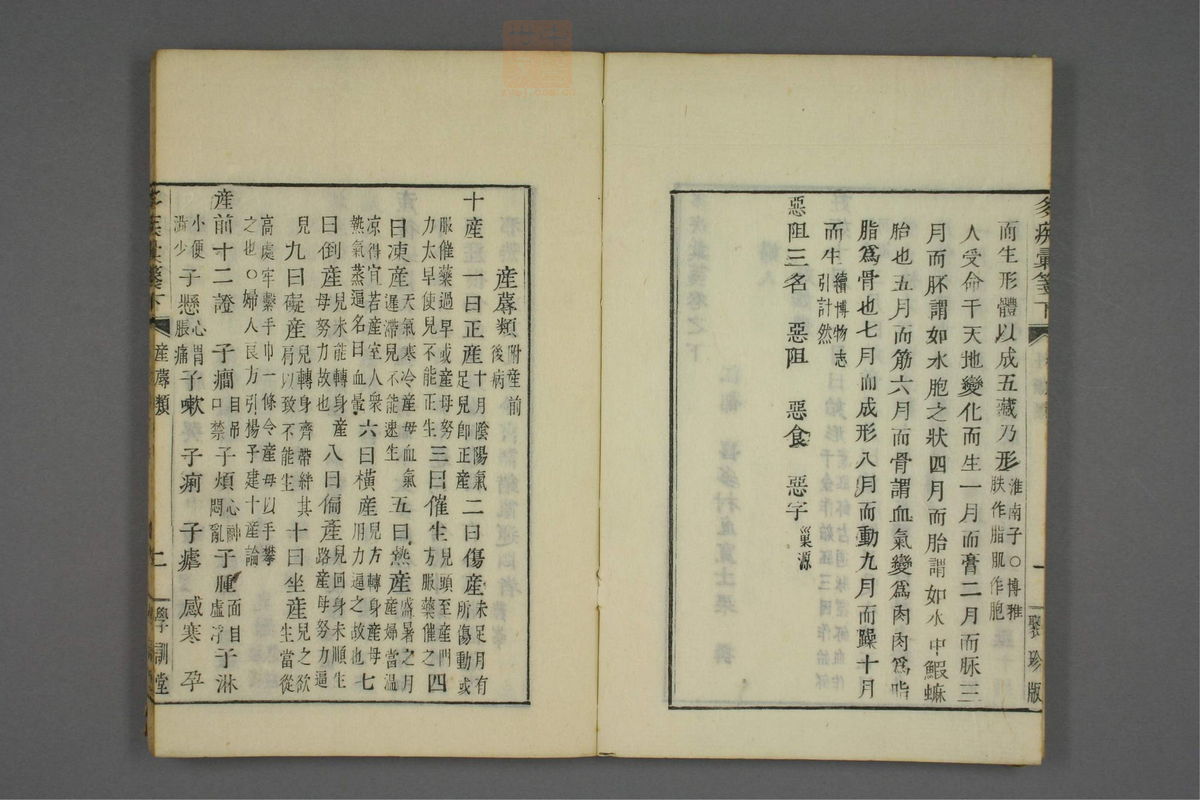 而生形體以成五藏乃形淮南子○博雅胅作脂肌作胞
人受命于天地變化而生一月而膏二月而脈三
月而胚謂如水胞之狀四月而胎謂如水中鰕蟆
胎也五月而筋六月而骨謂血氣變爲肉肉爲脂
脂爲骨也七月而成形八月而動九月而躁十月
而生續博物志引計然
惡阻三名　惡阻　惡食　惡字巢源
聚珍版
産蓐類附産前後病
十産　一曰正産十月陰陽氣足兒卽正産二曰傷産未足月有所傷動或
服催藥過早或産母努力太早使兒不能正生三曰催生兒頭至産門方服藥催之四
曰凍産天氣寒冷産母血氣遲滯兒不能速生五曰熱産盛暑之月産婦當温
凉得宜若産室人衆熱氣蒸逼名曰血暈六曰横産兒方轉身産母用力逼之故也七
曰倒産兒未能轉身産母努力故也八曰偏産兒回身未順生路産母努力逼
兒九曰礙産兒轉身臍帶絆其肩以致不能生十曰坐産兒之欲生當從
高處牢繫手巾一條令産母以手攀之也○婦人良方引楊子建十産論
産前十二證　子癎目吊口禁子煩心神悶亂子腫面目虛浮子淋
小便澁少子懸心胃脹痛子嗽子痢　子瘧　感寒　孕
産蓐類
二
學訓堂